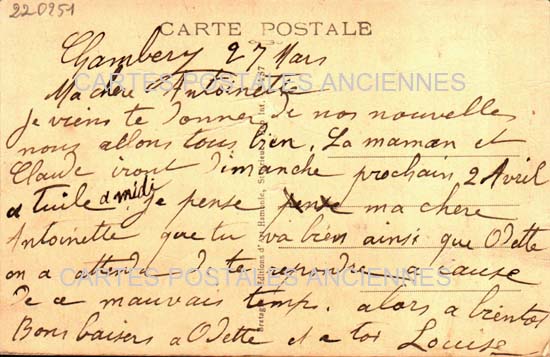 220251
CARTE POSTALE
Chambery 27 Mars
Ma chère Antoinette
CARTES POSTALES ANCIENNES
je viens te donner de nos nouvelles
nous allons tous bien. La maman et
Claude iront Dimanche prochain 2 Avril
a Tuile a midi je pense ma chère
Antoinette que tu va bien ainsi que Odette
on a attendu de te repondre a cause
CARTES POSTALES ANCIENNES
de ce mauvais temps. alors a bientot
Bons baisers a Odette et a toi Louise